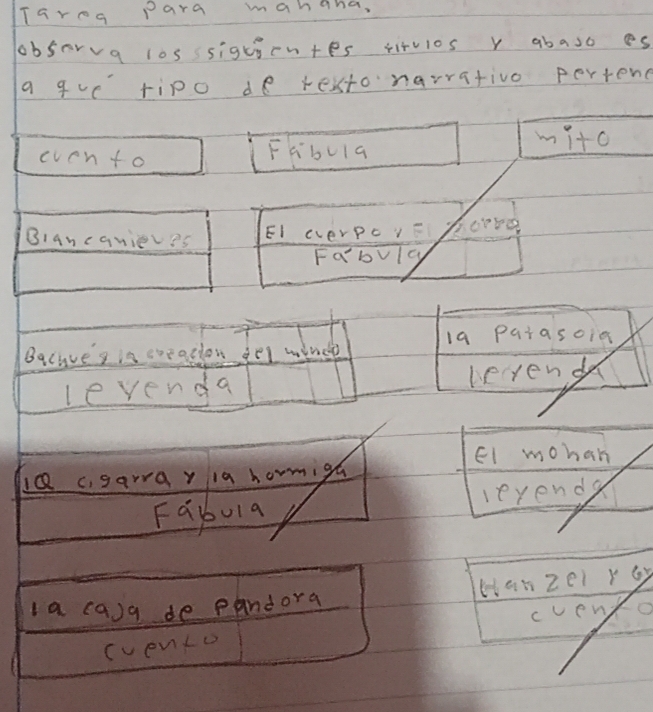 Tarea para mañana.
observa los siguientes titulos y abajo es
a qué tipo de texto narrativo pertene
cuento Fábula mito
Blancanieves El cuerpo y El zorro
Fábula
Bachué y la creación del mundo la patasola
leyenda leyenda
la cigarra y la hormiga El mohan
Fábula leyenda
la caja de pandora Hanzel y Gr
cuento cuento